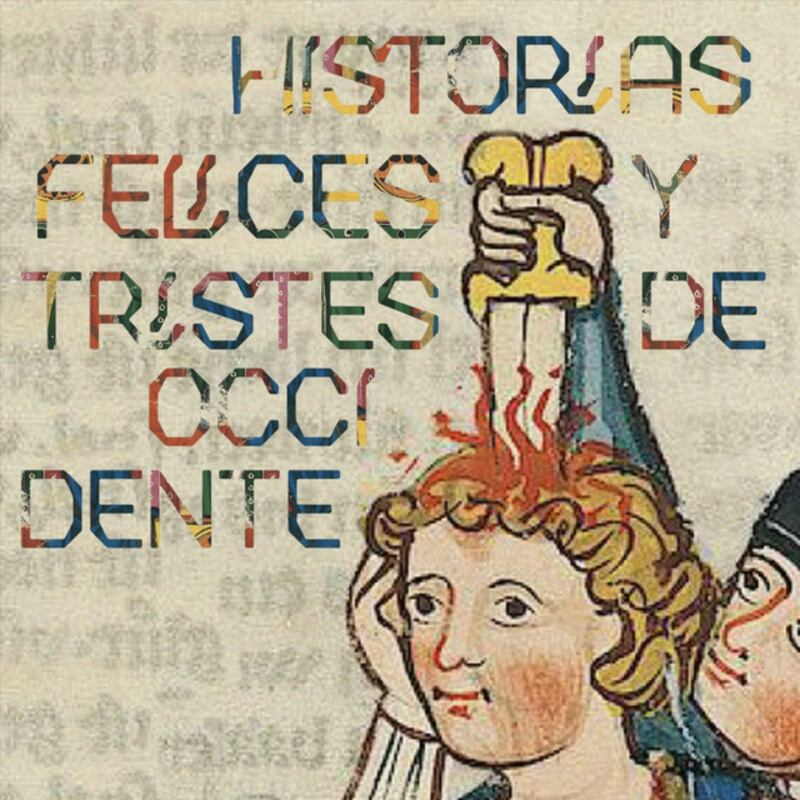 HISTORIAS
FELICES Y
TRISTES DE
OCCI
DENTE